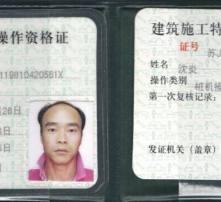 操作资格证
119810420561X
28日
建筑施工特
证号
苏A
姓名 沈炎
操作类别
桩机操
第一次复核记录:
发证机关(盖章)